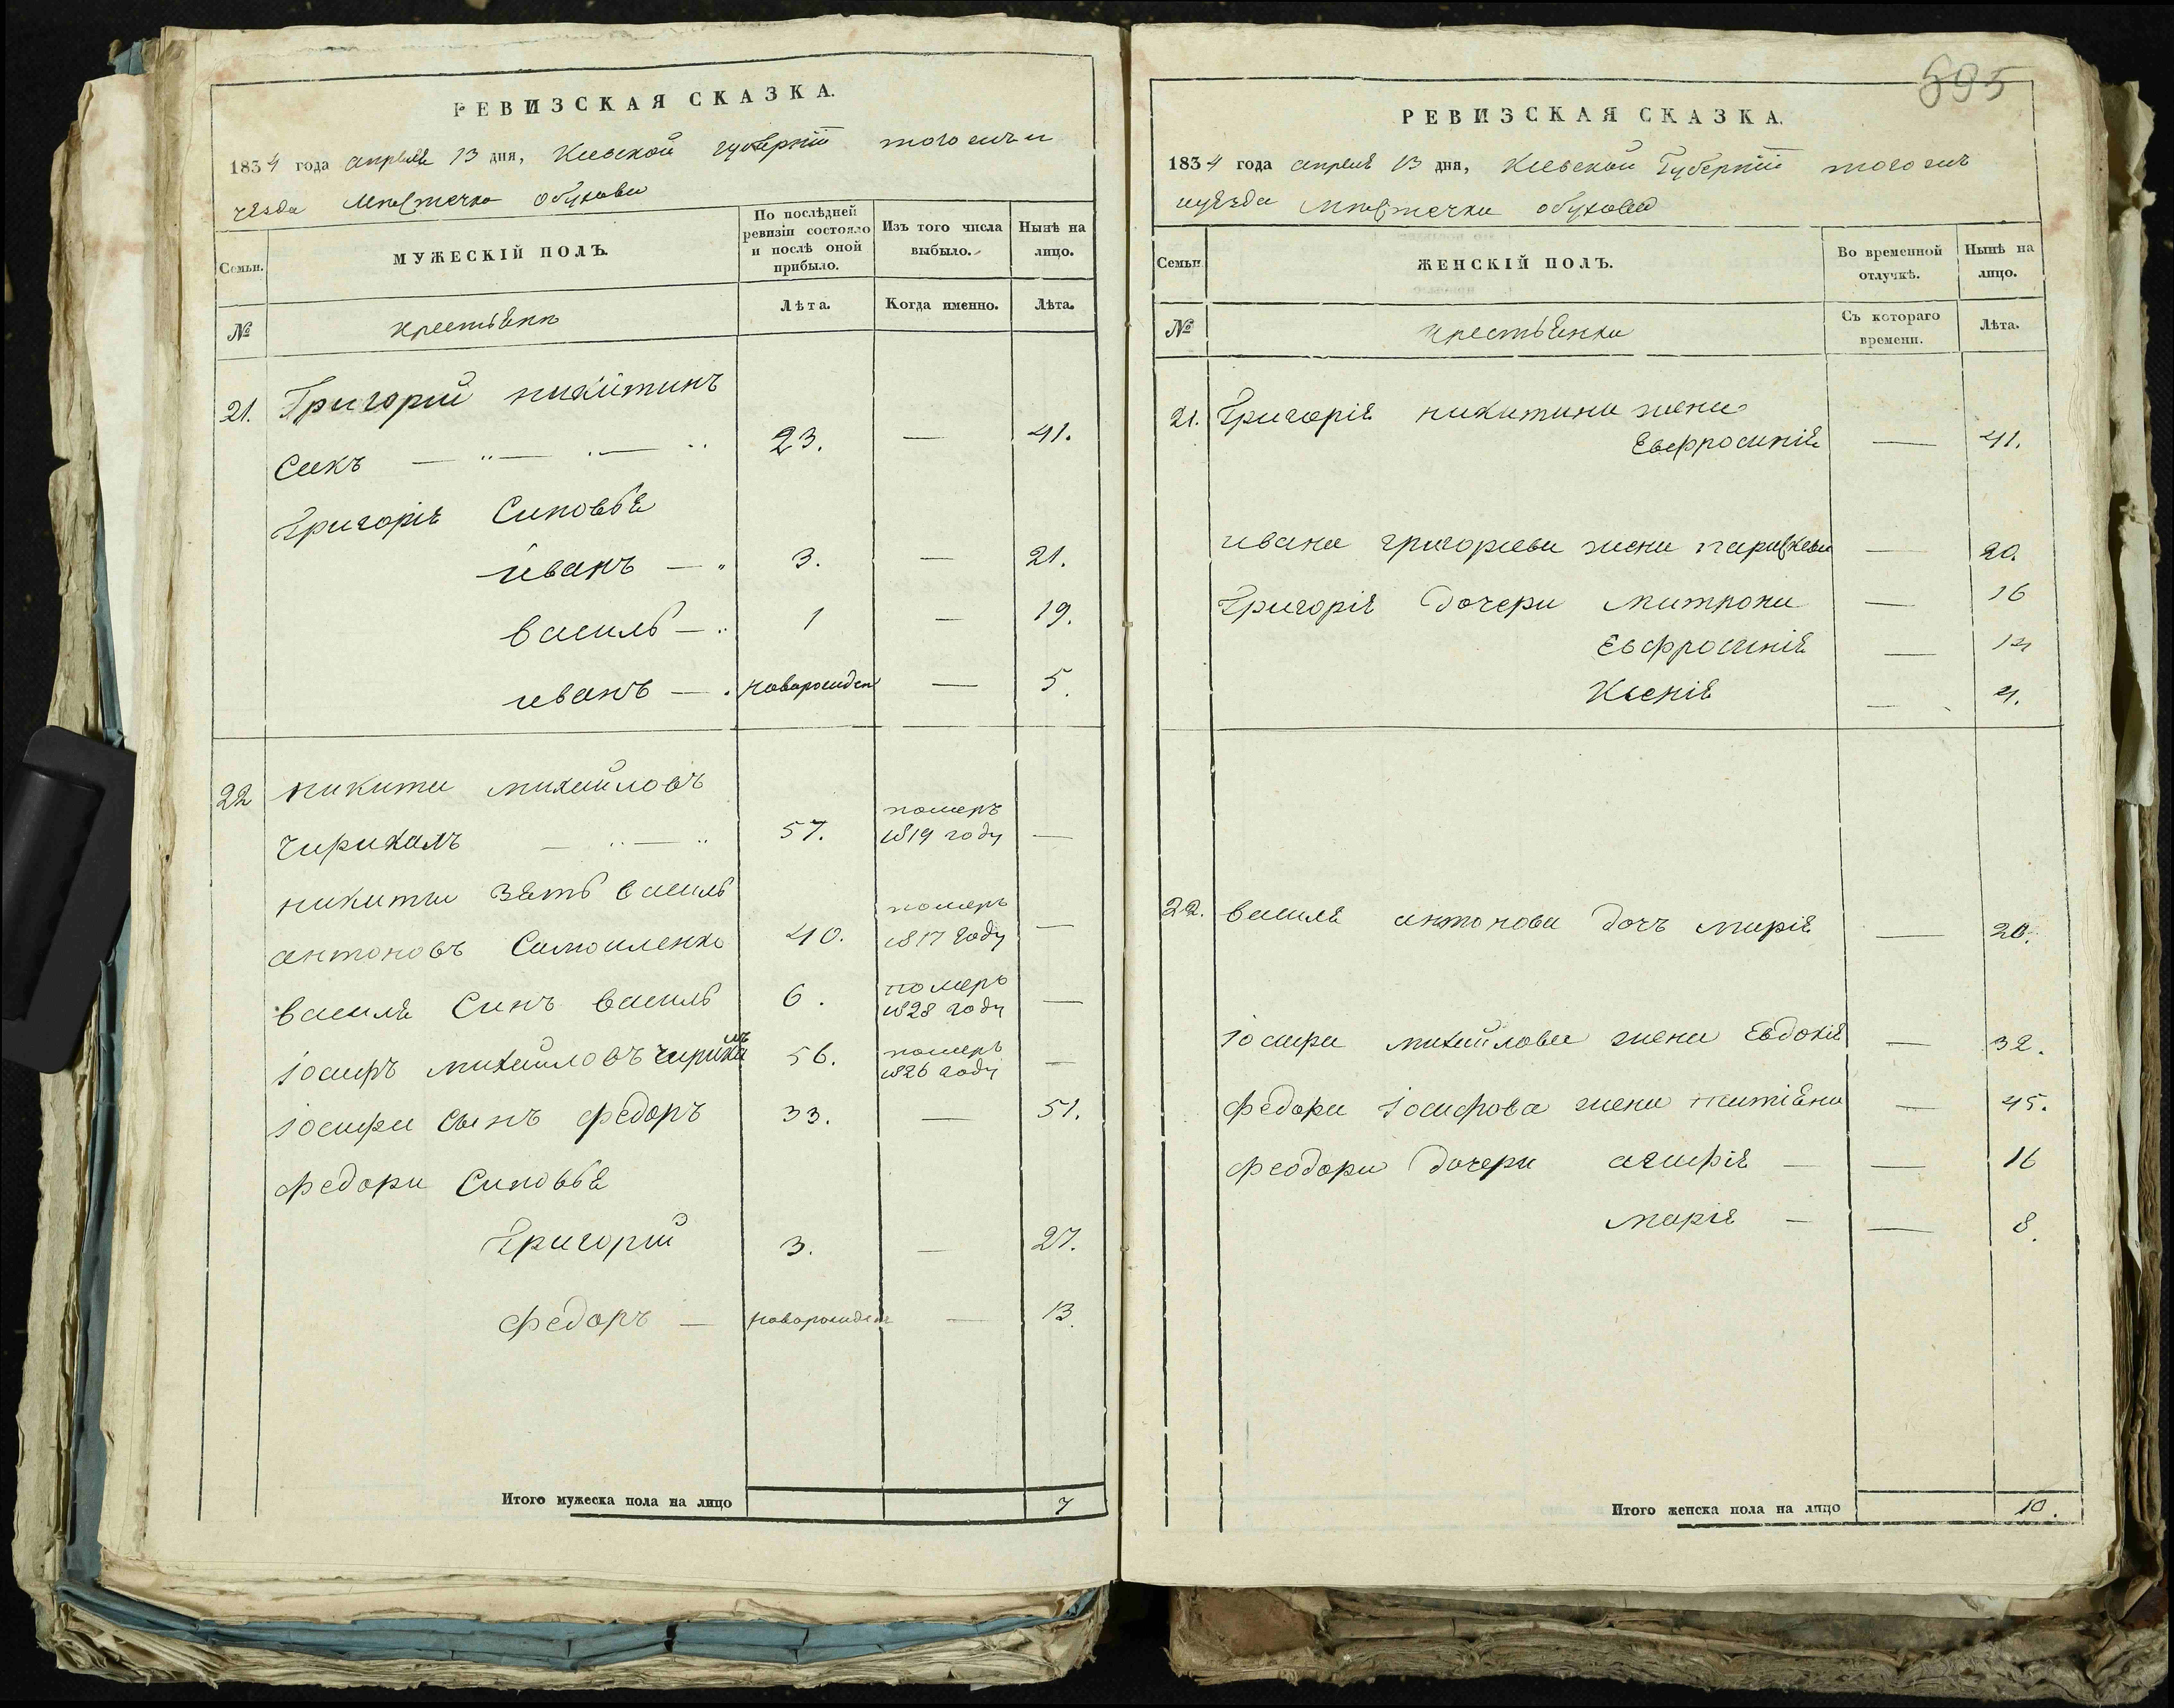 РЕВИЗСКАЯ СКАЗКА.
1834 года апреля 13 дня, Киевской губернїи того жъ и
уѣзда Мѣстечка обухова
Семьи. МУЖЕСКІЙ ПОЛЪ. По послѣдней ревизіи состояло и послѣ оной прибыло. Изъ того числа выбыло. Нынѣ на лицо.
№ крестьяне Лѣта. Когда именно. Лѣта.
21. Григорий никитинъ
23. — 41.
Григорія Синовья
иванъ — 3. — 21.
василь — 1 — 19.
иванъ — новорожден — 5.
22 никита михайловъ
57. померъ 1819 году —
никиты зять василь
антоновъ Самойленко 40. померъ 1817 году —
василя Синъ василь 6. померъ 1828 году —
іосифъ михайловъ 56. померъ 1826 году —
іосифа сынъ федоръ 33. — 51.
федора Синовья
Григорий 3. — 27.
федоръ — новорожден — 13.
Итого мужеска пола на лицо 7
595
РЕВИЗСКАЯ СКАЗКА.
1834 года апреля 13 дня, Киевской Губернїи того жъ
уѣзда мѣстечка обухова
Семьи ЖЕНСКІЙ ПОЛЪ. Во временной отлучкѣ. Нынѣ на лицо.
№ крестьянки Съ котораго времени. Лѣта.
21. Григорія никитина жена
Евфросинія — 41.
ивана григориева жена параскева — 20.
Григорія дочери матрона — 16
Евфросинія —
Ксенія — 4.
22. василя антонова дочъ марія — 20.
іосифа михайлова жена Евдокія — 32.
федора іосифова жена татіяна — 45.
феодора дочери агафія — — 16
марія — — 8.
Итого женска пола на лицо 10.